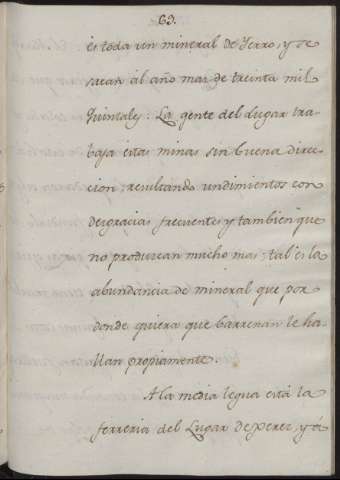 63.
es toda un mineral de Yerro, y se
sacan al año mas de treinta mil
Quintales. La gente del Lugar tra-
baja estas minas sin buena direc-
cion, resultando undimientos con
desgracias frecuentes, y tambien que
no produzcan mucho mas; tal es la
abundancia de mineral que por
donde quiera que barrenan le ha-
llan propiamente.
A la media legua està la
ferreria del Lugar de Xerez, y à